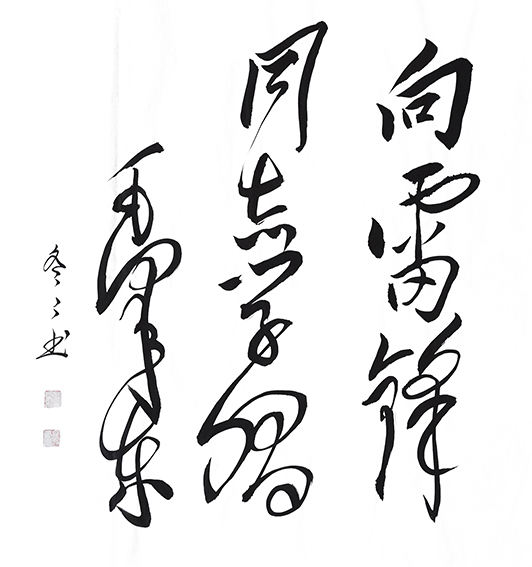 向雷锋
同志学习
毛泽东
冬之书